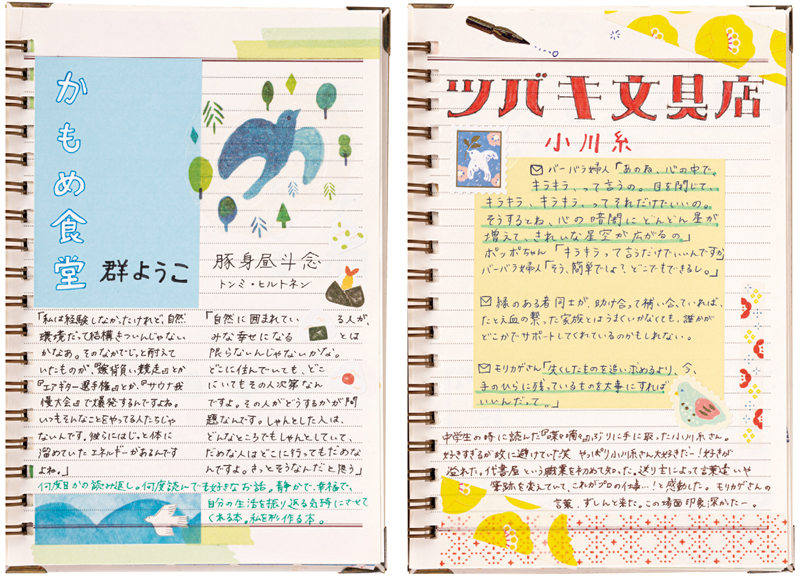 かもめ食堂
群ようこ
豚身昼斗念
トンミ・ヒルトネン
「私は経験しなかったけれど、自然
環境だって結構きついんじゃない
かなあ。そのなかでじっと耐えて
いたものが、『嫁背負い競走』とか
『エアギター選手権』とか、『サウナ我
慢大会』で爆発するんですよね。
いつもそんなことをやってる人たちじゃ
ないんです。彼らにはじっと体に
溜めていたエネルギーがあるんです
よね。」
「自然に囲まれている人が、
みな幸せになるとは
限らないんじゃないかな。
どこに住んでいても、どこ
にいてもその人次第なん
ですよ。その人がどうするかが問
題なんです。しゃんとした人は、
どんなところでもしゃんとしていて、
だめな人はどこに行ってもだめなん
ですよ。きっとそうなんだと思う」
何度目かの読み返し。何度読んでも好きなお話。静かで、幸福で、
自分の生活を振り返る気持にさせて
くれる本。私を形作る本。
ツバキ文具店
小川糸
バーバラ婦人「あのね、心の中で、
キラキラ、って言うの。目を閉じて、
キラキラ、キラキラ、ってそれだけでいいの。
そうするとね、心の暗闇にどんどん星が
増えて、きれいな星空が広がるの。」
ポッポちゃん「キラキラって言うだけでいいんですか」
バーバラ婦人「そう、簡単でしょ?どこでもできるし。」
縁のある者同士が、助け合って補い合っていれば、
たとえ血の繋った家族とはうまくいかなくても、誰かが
どこかでサポートしてくれているのかもしれない。
モリカゲさん「失くしたものを追い求めるより、今、
手のひらに残っているものを大事にすれば
いいんだって。」
中学生の時に読んだ『喋々喃々』ぶりに手に取った小川糸さん。
好きすぎるが故に避けていた笑 やっぱり小川糸さん大好きだー!好きが
溢れた。代書屋という職業を初めて知った。送り主によって言葉遣いや
筆跡を変えていて、これがプロの仕事…!と感動した。モリカゲさんの
言葉、ずしんと来た。この場面印象深かったー。